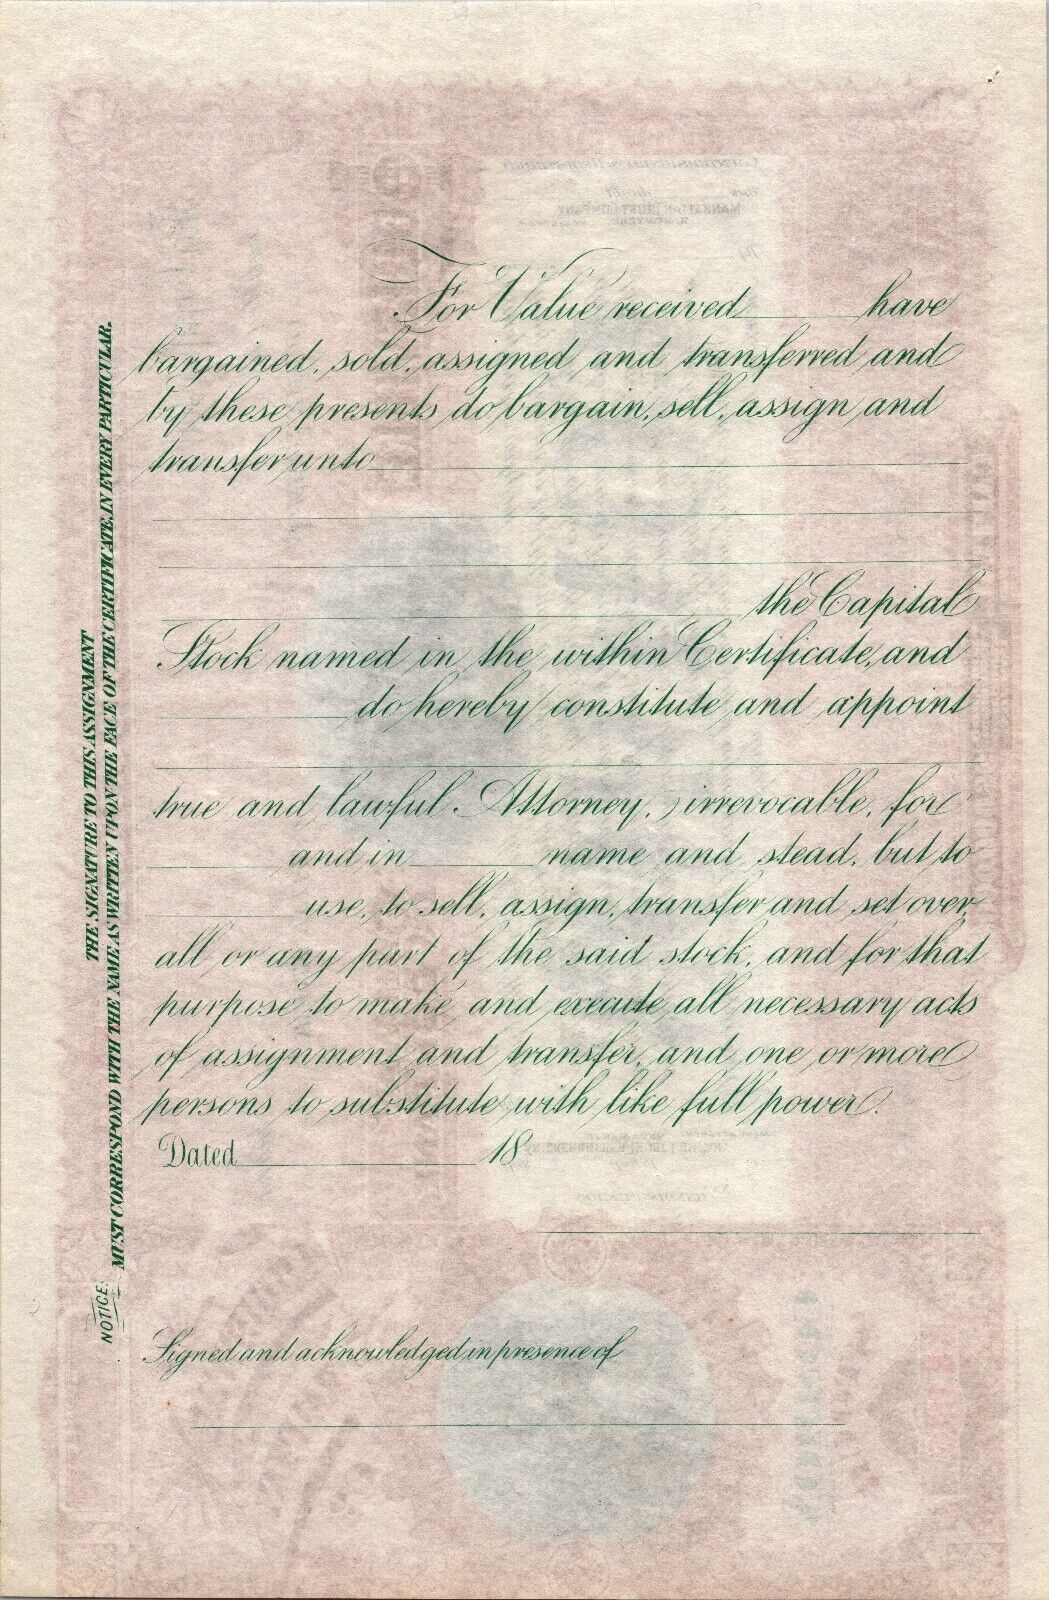 For Value received have
bargained, sold, assigned and transferred and
by these presents do bargain, sell, assign and
transfer unto
the Capital
Stock named in the within Certificate, and
do hereby constitute and appoint
true and lawful Attorney, irrevocable, for
and in name and stead, but to
use, to sell, assign, transfer and set over,
all or any part of the said stock, and for that
purpose to make and execute all necessary acts
of assignment and transfer, and one or more
persons to substitute with like full power.
Dated 18
Signed and acknowledged in presence of
NOTICE:
THE SIGNATURE TO THIS ASSIGNMENT
MUST CORRESPOND WITH THE NAME AS WRITTEN UPON THE FACE OF THE CERTIFICATE, IN EVERY PARTICULAR.
MANHATTAN TRUST COMPANY